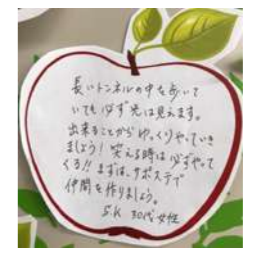 長いトンネルの中を歩いて
いても必ず光は見えます。
出来ることからゆっくりやっていき
ましょう！笑える時は必ずやって
くる!!まずは、サポステで
仲間を作りましょう。
S.K 30代女性